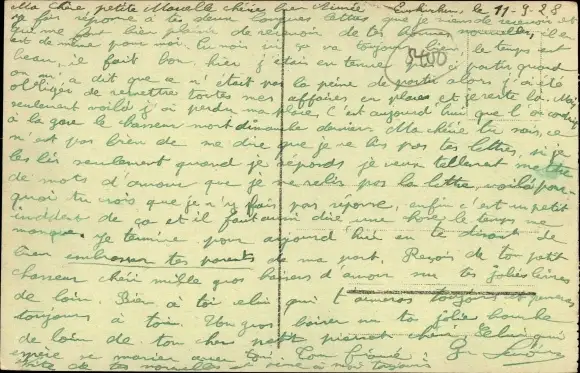 Ma Chère, petite Marcelle chérie bien Aimée Euskirchen le 11-9-28
va faire réponse à tes deux longues lettres que je viens de recevoir et
qui me font bien plaisir de recevoir de tes bonnes nouvelles, il en
est de même pour moi. Tu vois ici ça va toujours bien, le temps est
beau, il fait bon. hier j'étais en tenue pour partir quand
on m'a dit que ce n'était pas la peine de partir alors j'ai été
obliger de remettre toutes mes affaires en place et je reste là. Moi
seulement voilà j'ai perdu ma place, c'est aujourd'hui que l'on conduit
à la gare le chasseur mort dimanche dernier. Ma chérie tu sais, ce
n'est pas bien de me dire que je ne lis pas tes lettres, si je
les lis seulement quand je réponds je veux tellement mettre
de mots d'amour que je ne relis pas la lettre, voilà pour-
quoi tu vois que je n'y fais pas réponse, enfin c'est un petit
incident de ça et il faut aussi dire une chose le temps me
manque. Je termine pour aujourd'hui en te disant de
bien embrasser tes parents de ma part. Reçois de ton petit
chasseur chéri mille gros baisers d'amour sur tes jolies lèvres
de loin. Bien à toi celui qui t'aimeras toujours et penseras
toujours à toi. Un gros baiser sur ta jolie bouche
de loin de ton cher petit pierrot chéri. Celui qui
espère se marier avec toi. Ton fiancé :
vite de tes nouvelles et rêve à moi toujours
3400